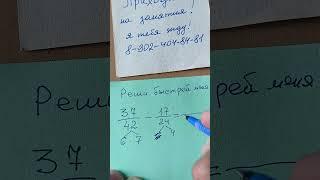 Приходи
на занятия!
я тебя жду!
8-902-404-84-81
Реши быстрей меня
37/42 - 17/24 =
6 7 4
37